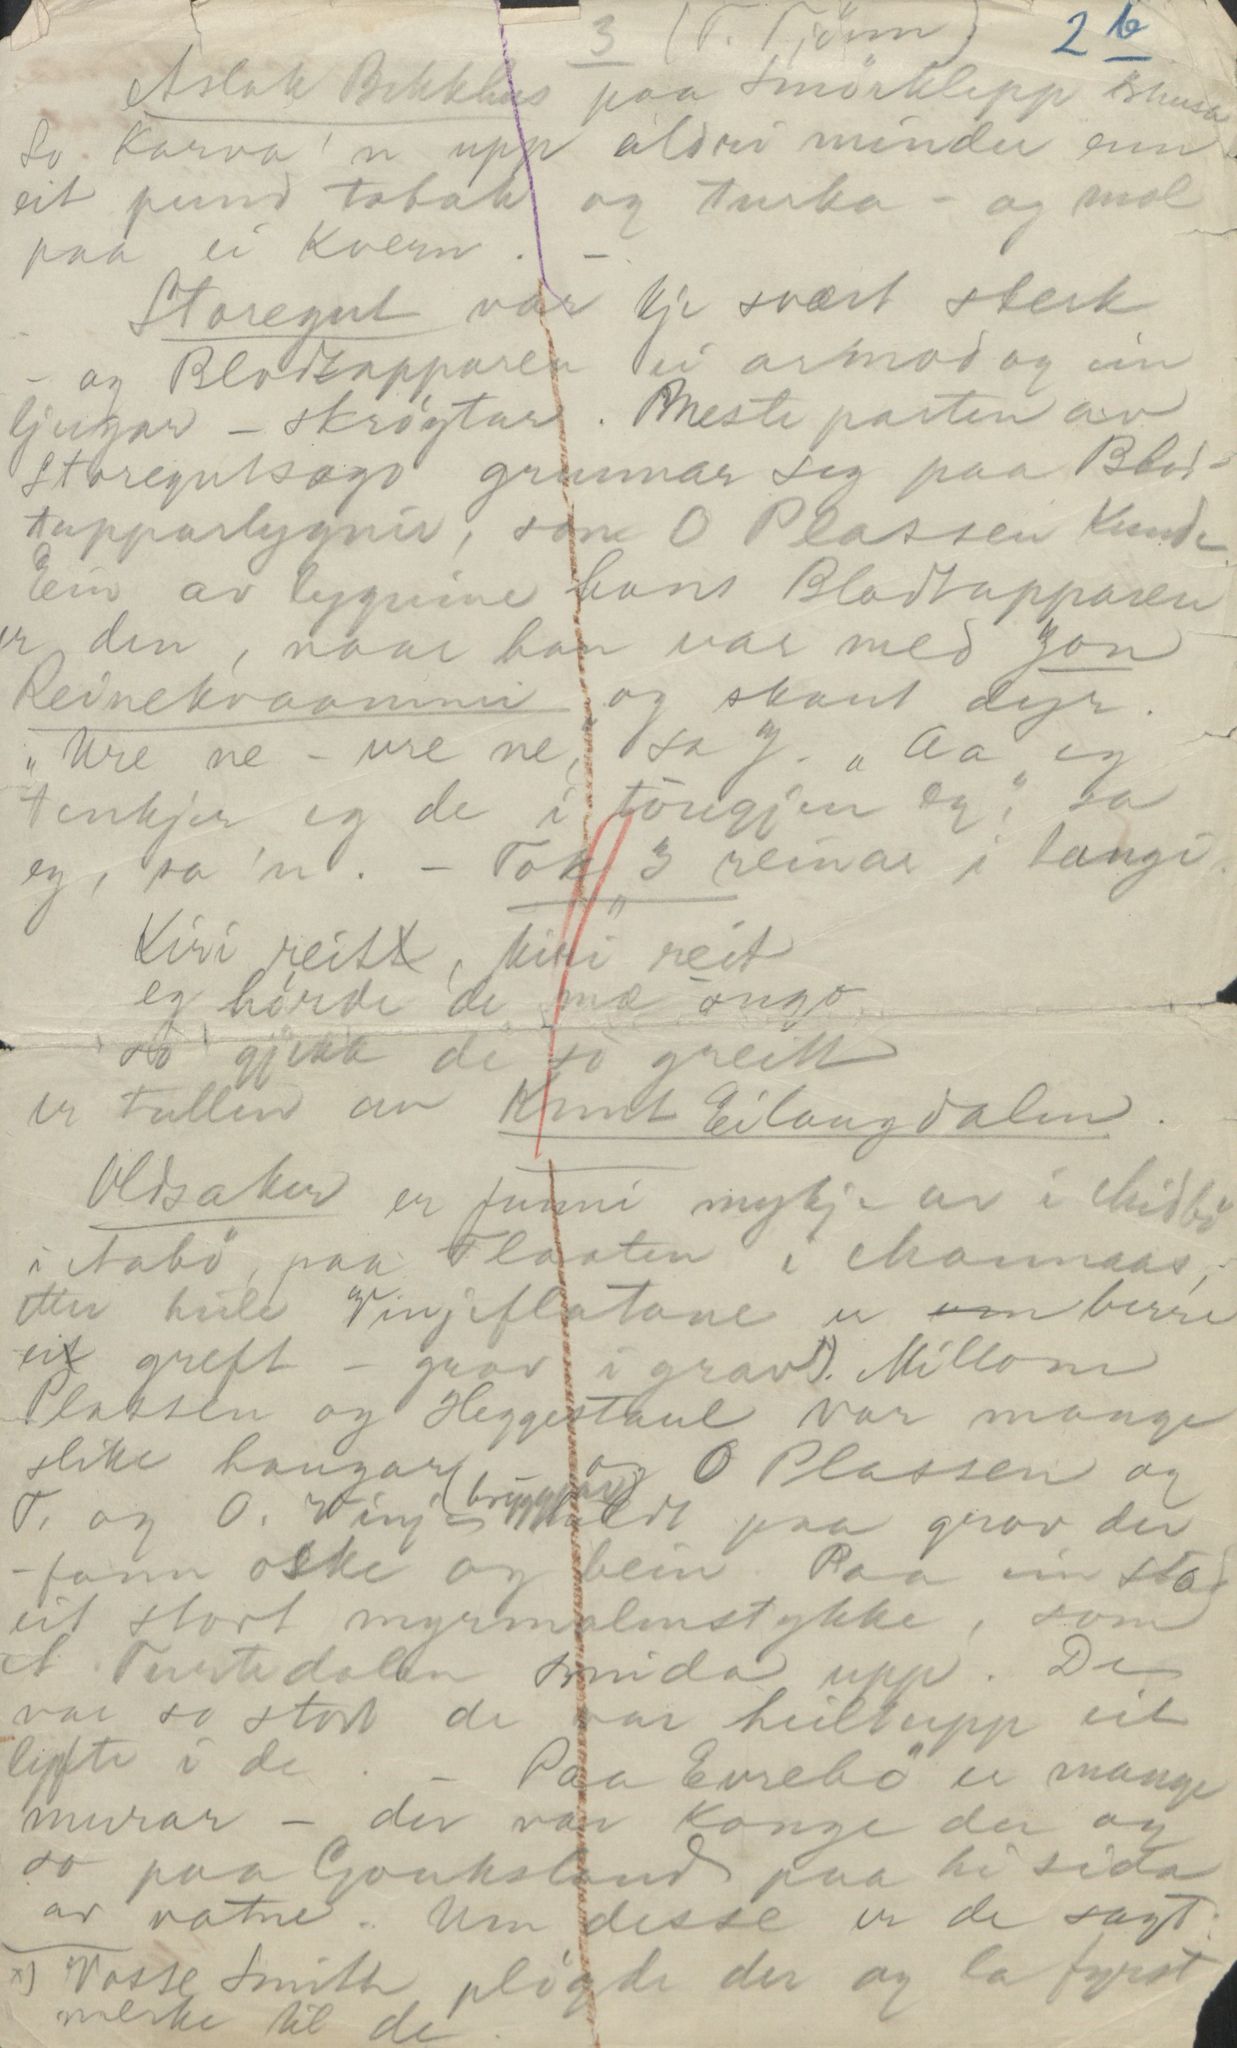 3 (T. Tjönn) 2 b
Aslak Bekkhus paa Smörklepp
So Karva'n upp aldri mindei enn
eit pund tobak og turka - og mol
paa ei Kvern. -
Storegut var kje svært sterk
- og Blodtapparen ei armod og ein
ljugar - skrögtar. Meste parten av
Storegutsogo grunnar seg paa Blod-
tapparlygnir, som O Plassen kunde
Ein av lygnine hans Blodtapparen
er den, naar han var med Jon
Reinekvaammen og skaut dyr.
"Ure ne - ure ne, sa J. "Aa eg
tenkjer eg de i töregjen eg", sa
eg, sa'n. - Tok 3 reinar i
Kiri reitt, kiri reit
eg hörde de mæ ongo
so gjekk de so greitt
er tullen av Knut Eilaugdalen.
Oldsaker er funni mykje av i Midbö
i Nabö, paa Flaaten i Mannaas,
etter heile Vinjeflatane er berre
eit greft - grav i grav x). Millom
Plassen og Heggestaul var mange
slike haugar og O Plassen og
T. og O. Vinje heldt paa grov der
- fann oske og bein. Paa ein stad
eit stort myrmalmstykke, som
A. Turtedalen smida upp. De
var so stort de var heilt upp eit
lyfte i de. - Paa Evrebö er mange
murar - der var Konge der og
so paa Gouksland paa hi sida
av vatne. Um desse er de sagt:
x) Vosse Smith plögde der og la fyrst
merke til de.